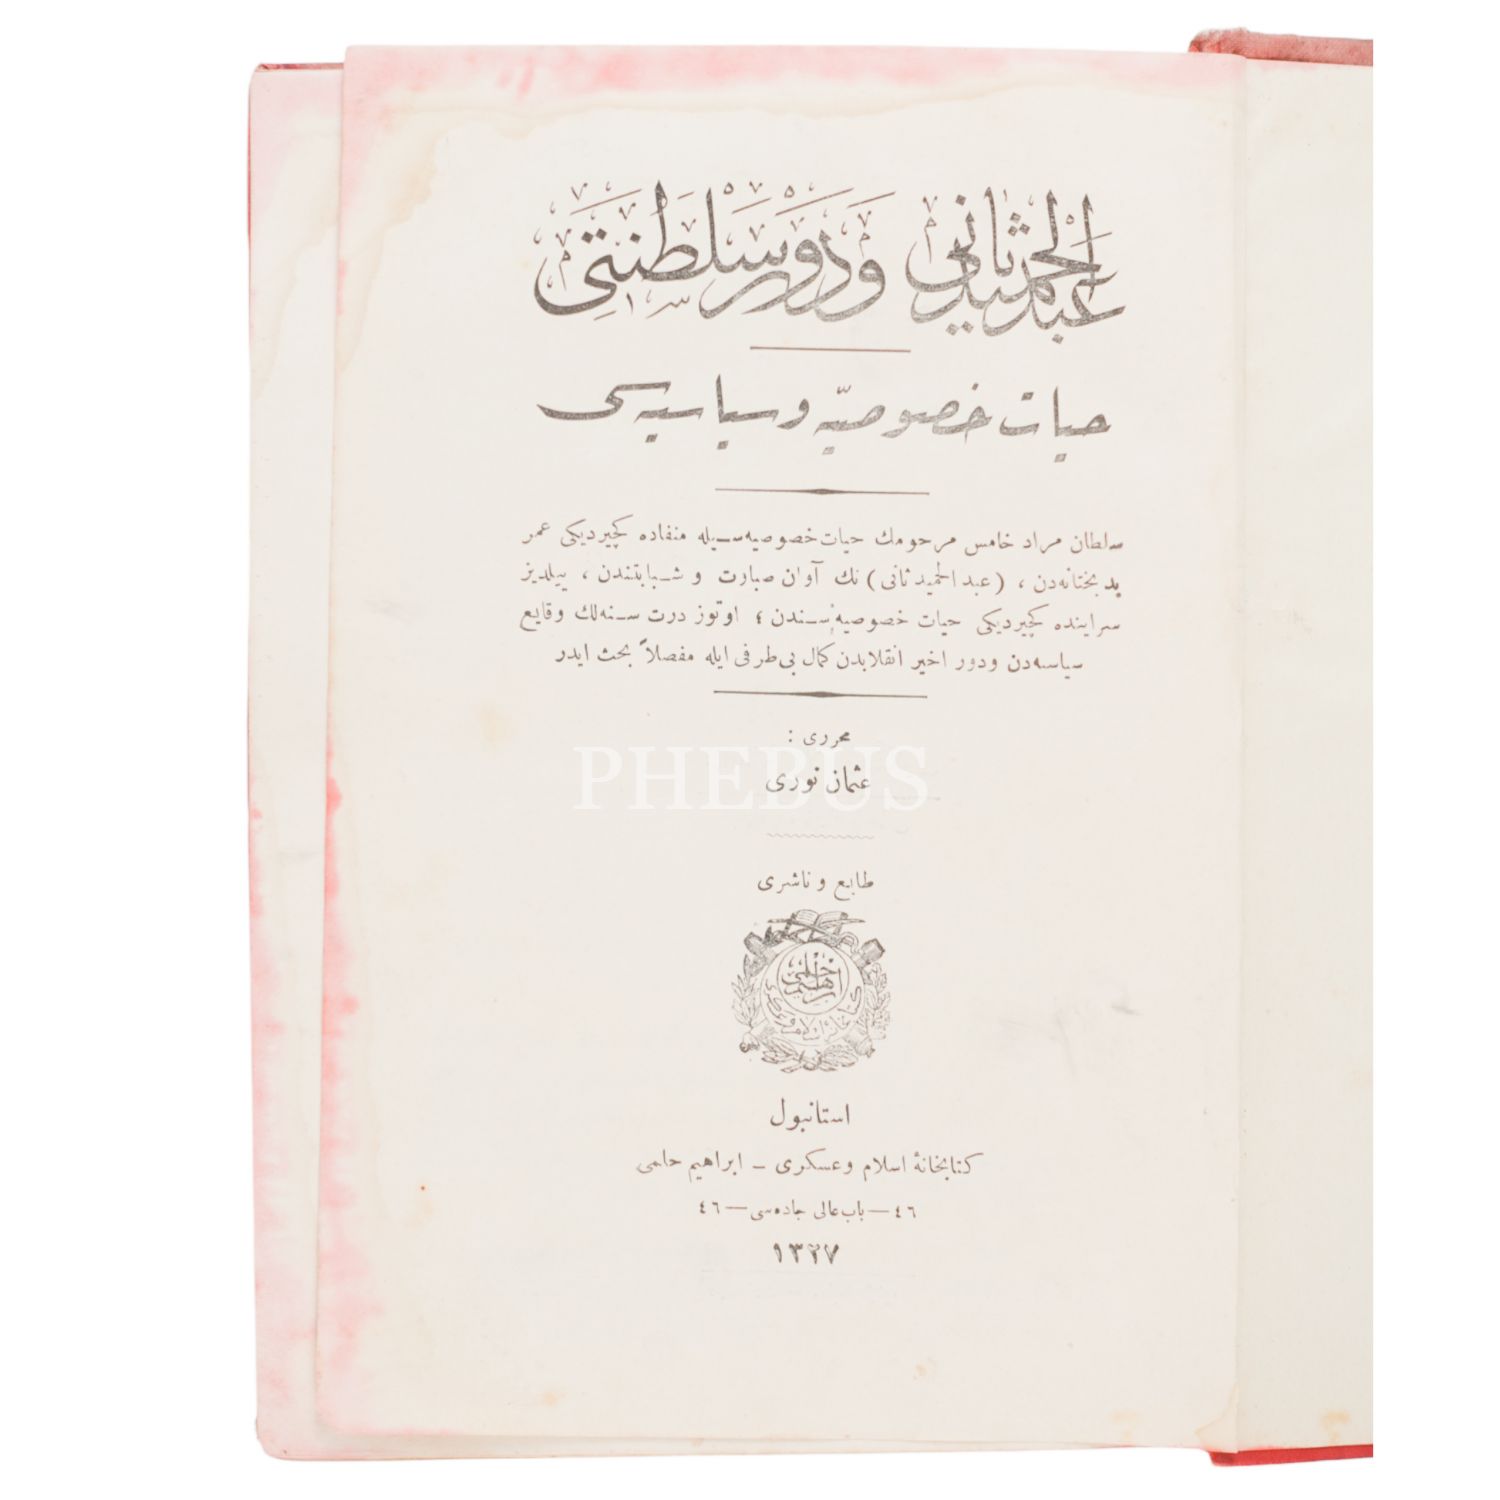 عبدالحميد ثانى ودور سلطنتى
حيات خصوصيه وسياسيه‌سى
سلطان مراد خامس مرحومك حيات خصوصيه‌سيله منفاده كچيرديكى عمر
بدبختانه‌دن ، (عبدالحميد ثانى) نك آوان صباوت و شبابتندن ، ييلديز
سراينده كچيرديكى حيات خصوصيه‌سندن ؛ اوتوز درت سنه‌لك وقايع
سياسيه‌دن ودور اخير انقلابدن كمال بى‌طرفى ايله مفصلاً بحث ايدر
محررى :
عثمان نورى
PHEBUS
طابع و ناشرى
ابراهيم حلمى
استانبول
كتابخانۀ اسلام وعسكرى – ابراهيم حلمى
٤٦ — باب عالى جاده‌سى — ٤٦
١٣٢٧